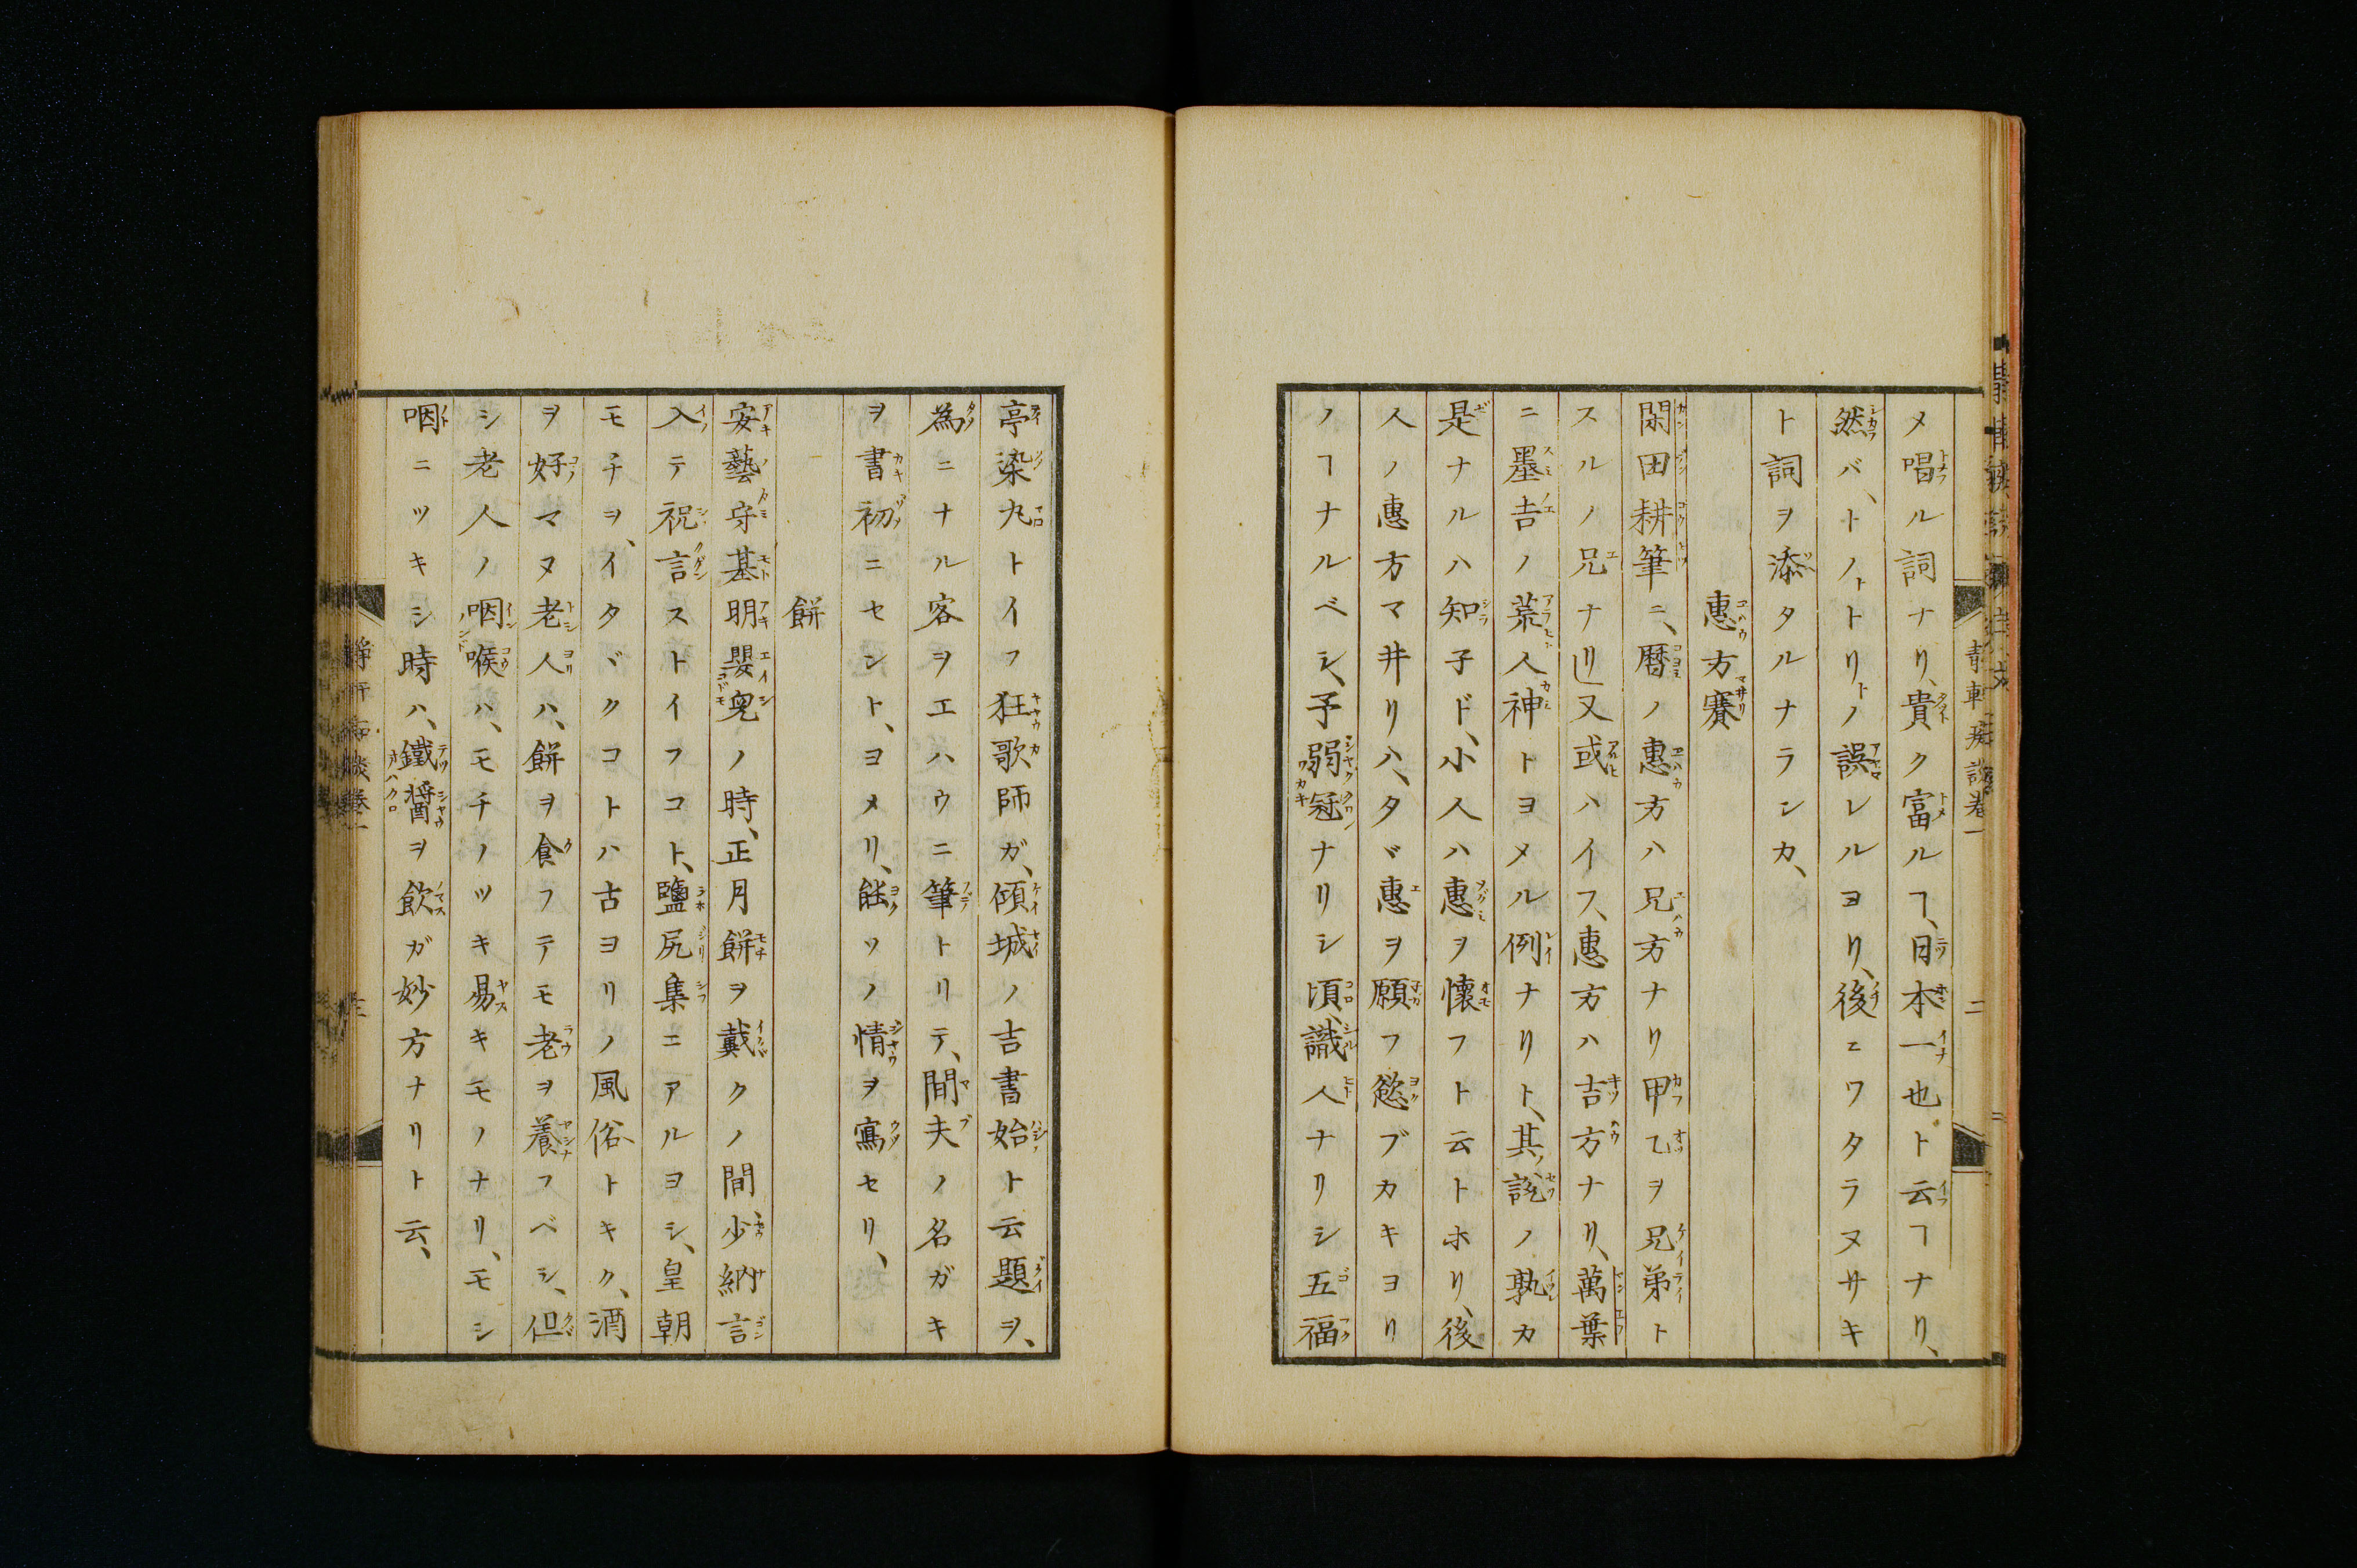 メ唱ル詞ナリ、貴ク富ルヿ、日本一也ト云ヿナリ、
然バ、トノトリノ誤レルヨリ、後ニワタラヌサキ
ト詞ヲ添タルナランカ、
惠方賽
閑田耕筆ニ、暦ノ惠方ハ兄方ナリ甲乙ヲ兄弟ト
スルノ兄ナリ又或ハイフ、惠方ハ吉方ナリ、萬葉
ニ墨吉ノ荒人神トヨメル例ナリト、其説ノ孰カ
是ナルハ知子ド、小人ハ惠ヲ懐フト云トホリ、後
人ノ惠方マ井リハ、タヾ惠ヲ願フ慾ブカキヨリ
ノヿナルベシ、予弱冠ナリシ頃、識人ナリシ五福
亭染丸トイフ狂歌師ガ、傾城ノ吉書始ト云題ヲ、
為ニナル客ヲエハウニ筆トリテ、間夫ノ名ガキ
ヲ書初ニセント、ヨメリ、能ソノ情ヲ寫セリ、
餅
安藝守基明嬰児ノ時、正月餅ヲ戴クノ間少納言
入テ祝言ストイフコト、鹽尻集ニアルヨシ、皇朝
モチヲ、イタヾクコトハ古ヨリノ風俗トキク、酒
ヲ好マヌ老人ハ、餅ヲ食フテモ老ヲ養フベシ、但
シ老人ノ咽喉ハ、モチノツキ易キモノナリ、モシ
咽ニツキシ時ハ、鐵醤ヲ飲ガ妙方ナリト云、